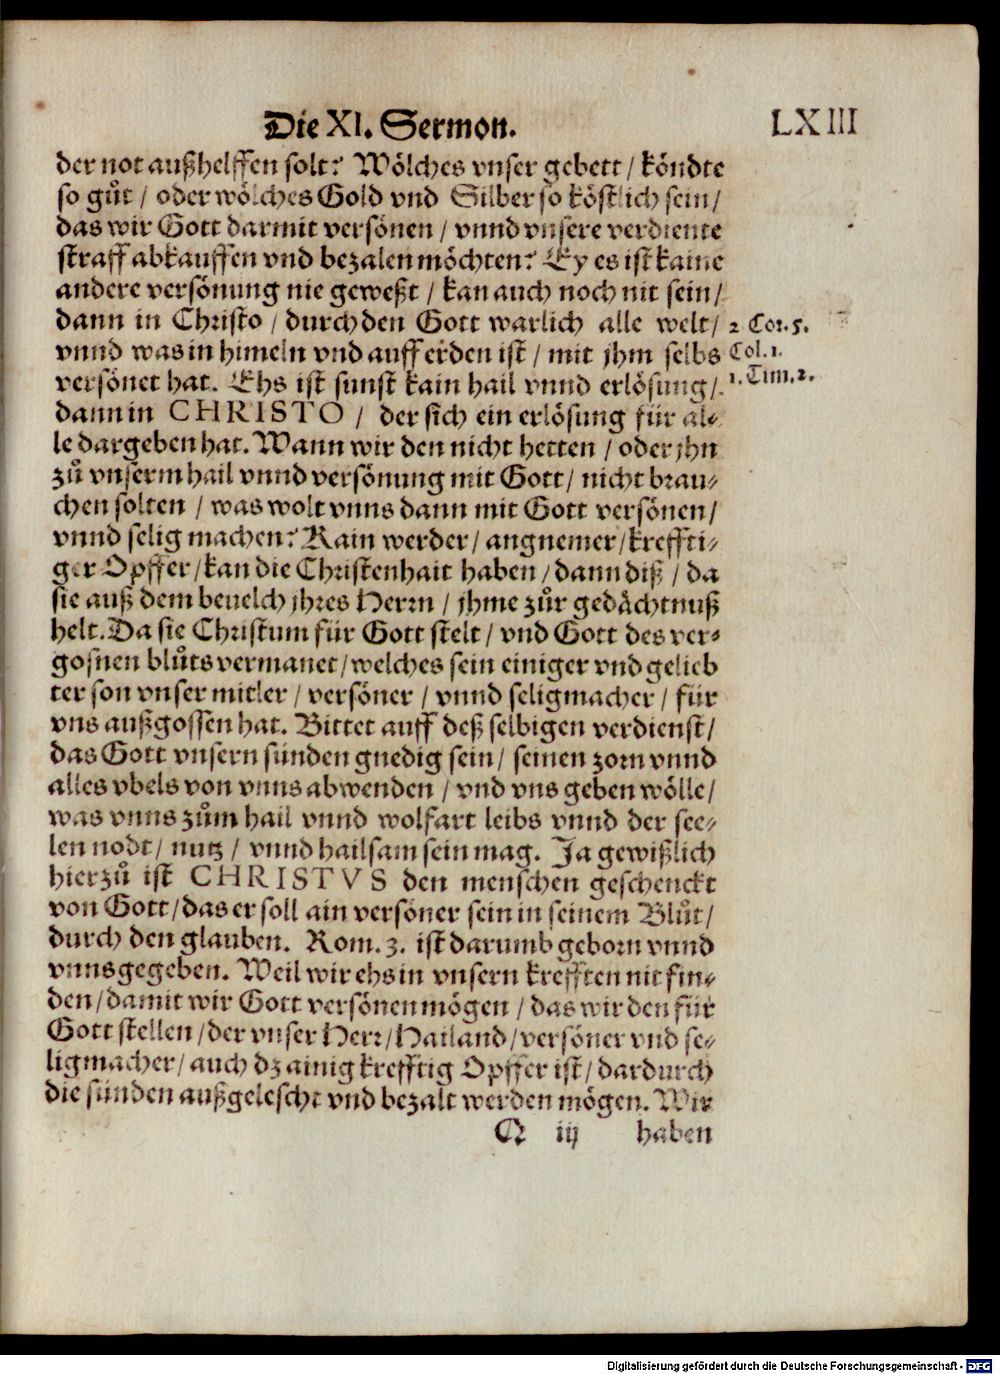 Die XI. Sermon. LXIII
der not außhelffen solt? Wölches vnser gebett / köndte
so gůt / oder wölches Gold vnd Silber so köstlich sein /
das wir Gott darmit versönen / vnnd vnsere verdiente
straff abkauffen vnd bezalen möchten? Ey es ist kaine
andere versönung nie geweßt / kan auch noch nit sein /
dann in Christo / durch den Gott warlich alle welt /
2 Cor. 5.
vnnd was in himeln vnd auff erden ist / mit jhm selbs
Col. 1.
versönet hat. Ehs ist sunst kain hail vnnd erlösung /
1. Tim. 2.
dann in CHRISTO / der sich ein erlösung für al⸗
le dargeben hat. Wann wir den nicht hetten / oder jhn
zů vnserm hail vnnd versönung mit Gott / nicht brau⸗
chen solten / was wolt vnns dann mit Gott versönen /
vnnd selig machen? Kain werder / angnemer / kreffti⸗
ger Opffer / kan die Christenhait haben / dann diß / da
sie auß dem beuelch jhres Herrn / jhme zůr gedächtnuß
helt. Da sie Christum für Gott stelt / vnd Gott des ver⸗
goßnen blůts vermanet / welches sein einiger vnd gelieb
ter son vnser mitler / versöner / vnnd seligmacher / für
vns außgossen hat. Bittet auff deß selbigen verdienst /
das Gott vnsern sünden gnedig sein / seinen zorn vnnd
alles vbels von vnns abwenden / vnd vns geben wölle /
was vnns zům hail vnnd wolfart leibs vnnd der see⸗
len nodt / nutz / vnnd hailsam sein mag. Ja gewißlich
hierzů ist CHRISTVS den menschen geschenckt
von Gott / das er soll ain versöner sein in seinem Blůt /
durch den glauben. Rom. 3. ist darumb geborn vnnd
vnns gegeben. Weil wir ehs in vnsern krefften nit fin⸗
den / damit wir Gott versönen mögen / das wir den für
Gott stellen / der vnser Herr / Hailand / versöner vnd se⸗
ligmacher / auch dz ainig krefftig Opffer ist / dardurch
die sünden außgelescht vnd bezalt werden mögen. Wir
Q iij haben
Digitalisierung gefördert durch die Deutsche Forschungsgemeinschaft - DFG